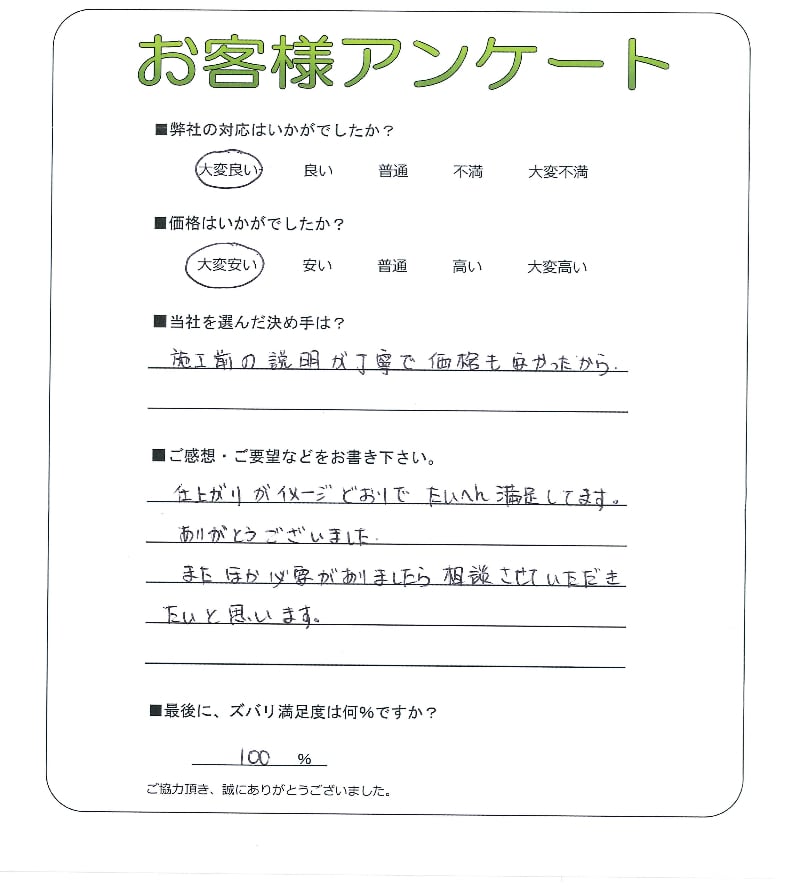 お客様アンケート
■弊社の対応はいかがでしたか？
大変良い 良い 普通 不満 大変不満
■価格はいかがでしたか？
大変安い 安い 普通 高い 大変高い
■当社を選んだ決め手は？
施工前の説明が丁寧で価格も良かったから.
■ご感想・ご要望などをお書き下さい。
仕上がりがイメージどおりでたいへん満足してます。
ありがとうございました.
またほか必要がありましたら相談させていただき
たいと思います。
■最後に、ズバリ満足度は何%ですか？
100 %
ご協力頂き、誠にありがとうございました。